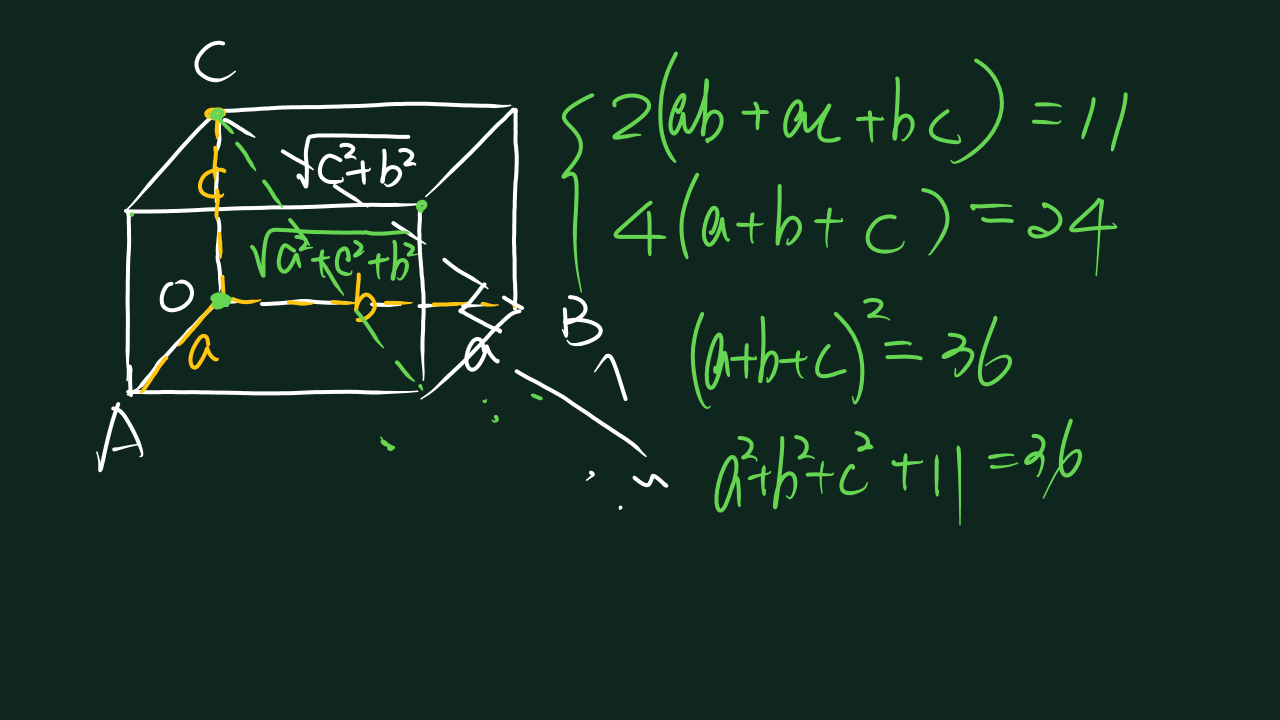 C
√(c²+b²)
c
√(a²+c²+b²)
O
b
B
a
a
A
2(ab + ac + bc) = 11
4(a+b+c) = 24
(a+b+c)² = 36
a²+b²+c² + 11 = 36